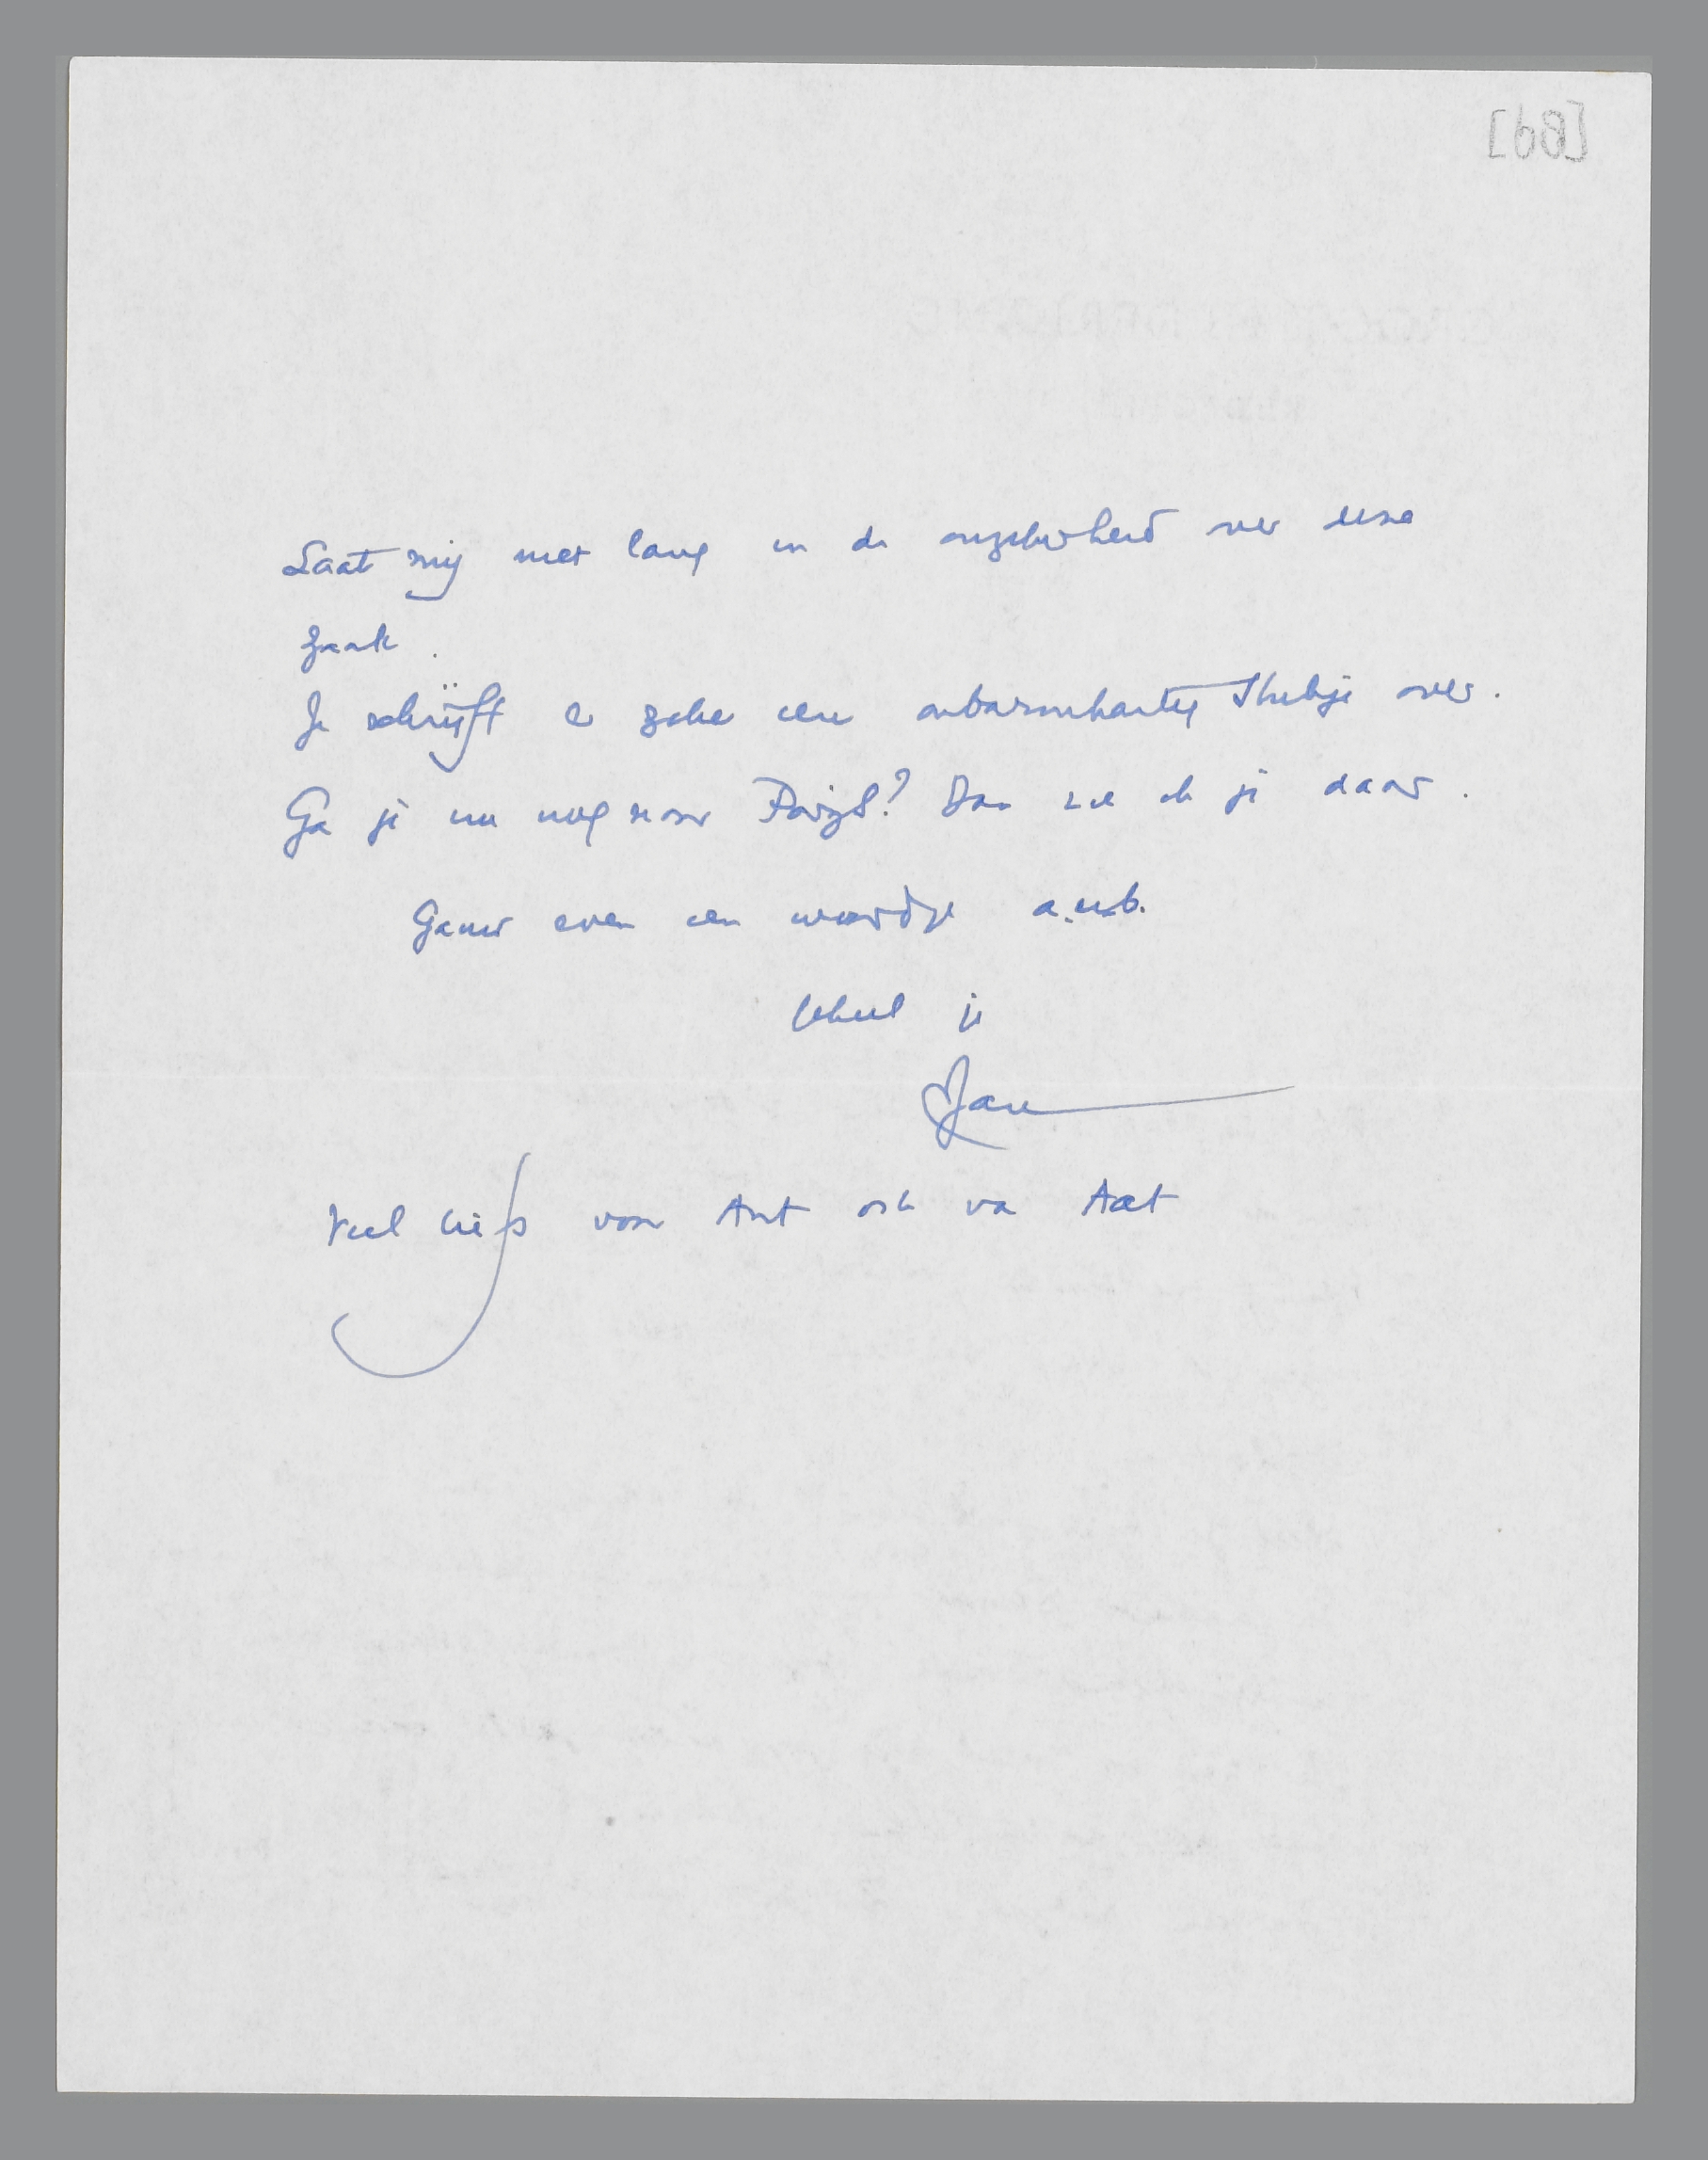 [68]
Laat mij niet lang in de onzekerheid over deze
zaak.
Je schrijft er zeker een onbarmhartig stukje over.
Ga je nu nog naar Parijs? Dan zie ik je daar.
Gauw even een woordje a.u.b.
geheel je
Jan
Veel liefs voor Ant ook van Aat